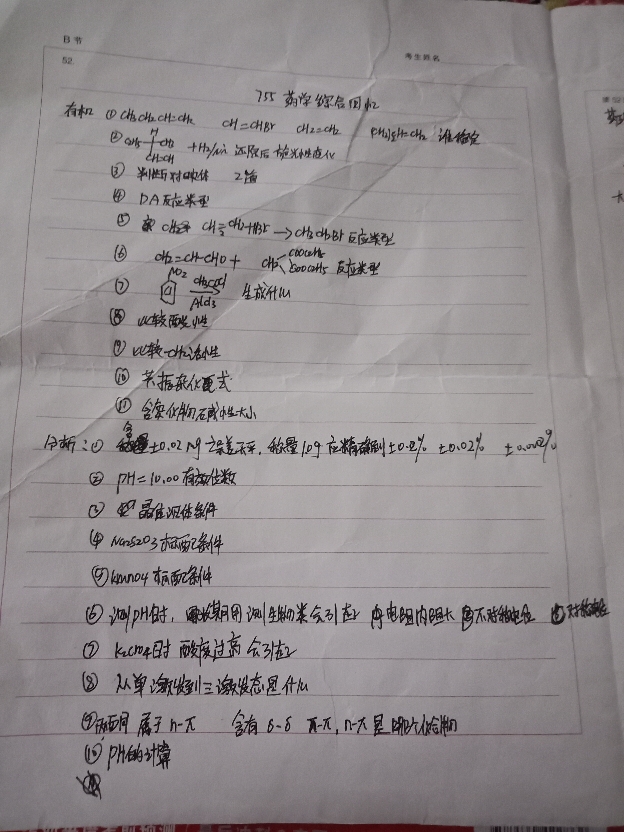 B 节
考生姓名
52.
755 药学综合回忆
有机 ① CH3CH2CH=CH2 CH=CHBr CH2=CH2 谁稳定
② +H2/Ni 还原后旋光性变化
③ 判断对映体 2道
④ DA反应类型
⑤ CH2+HBr → CH3CH2Br 反应类型
⑥ CH2=CH-CHO + CH2 COOC2H5 COOC2H5 反应类型
⑦ NO2 CH3COCl AlCl3 生成什么
⑧ 比较酸性
⑨ 比较-CH2活性
⑩ 芳香杂化
⑪ 含氮化物碱性大小
分析: ① 称量 ±0.02 mg 天平, 称量 10g 应精确到 ±0.2% ±0.02% ±0.002%
② pH=10.00 有效位数
③ 晶型沉体条件
④ Na2S2O3 标配条件
⑤ KMnO4 标配条件
⑥ 测pH时, 长期用 测生物类会引起 电阻内阻大 不对称电位
⑦ K2CrO4时 酸度过高会引起
⑧ 从单激发到三激发态是什么
⑨ 丙酮 属于 n-π 含有 δ-δ π-π, n-π 是哪个化合物
⑩ pH的计算